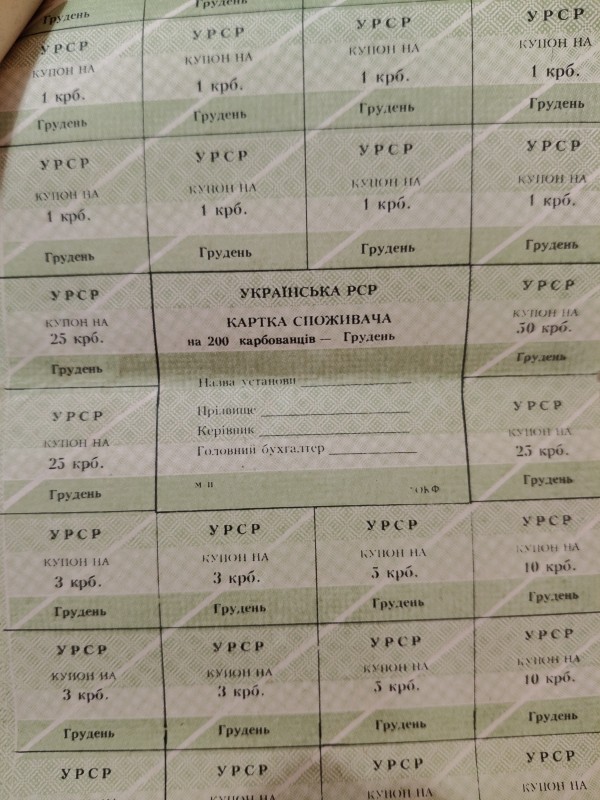 Грудень
Грудень
УРСР
КУПОН НА
1 крб.
Грудень
УРСР
КУПОН НА
1 крб.
Грудень
УРСР
КУПОН НА
1 крб.
Грудень
УРСР
КУПОН НА
1 крб.
Грудень
УРСР
КУПОН НА
1 крб.
Грудень
УРСР
КУПОН НА
1 крб.
Грудень
УРСР
КУПОН НА
1 крб.
Грудень
УРСР
КУПОН НА
1 крб.
Грудень
УРСР
КУПОН НА
25 крб.
Грудень
УРСР
КУПОН НА
25 крб.
Грудень
УКРАЇНСЬКА РСР
КАРТКА СПОЖИВАЧА
на 200 карбованців — Грудень
Назва установи
Прізвище
Керівник
Головний бухгалтер
м п
УРСР
КУПОН НА
50 крб.
Грудень
УРСР
КУПОН НА
25 крб.
Грудень
УРСР
КУПОН НА
3 крб.
Грудень
УРСР
КУПОН НА
3 крб.
Грудень
УРСР
КУПОН НА
5 крб.
Грудень
УРСР
КУПОН НА
10 крб.
Грудень
УРСР
КУПОН НА
3 крб.
Грудень
УРСР
КУПОН НА
3 крб.
Грудень
УРСР
КУПОН НА
5 крб.
Грудень
УРСР
КУПОН НА
10 крб.
Грудень
УРСР
УРСР
УРСР
КУПОН НА
УРСР
КУПОН НА